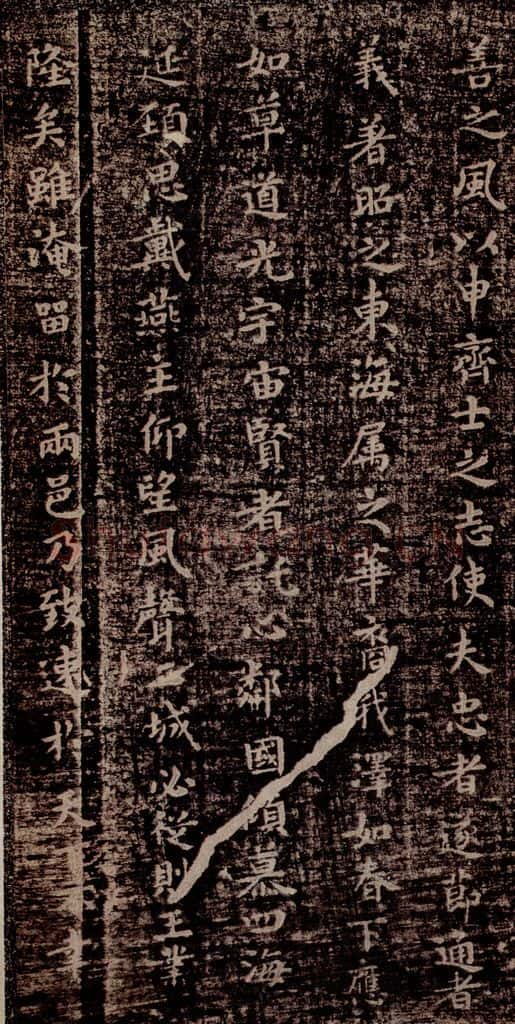 善之風以申齊士之志使夫忠者遂節通者
義著昭之東海属之華裔我澤如春下應
如草道光宇宙賢者託心鄰國傾慕四海
延頸思戴燕主仰望風聲二城必從則王業
隆矣雖淹留於兩邑乃致速於天